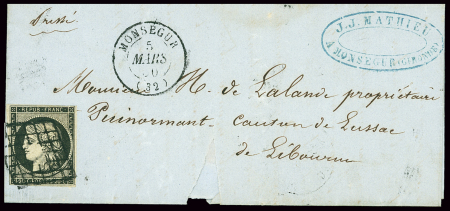 Pressé
MONSÉGUR
5
MARS
50
(32)
J.J. MATHIEU,
A MONSÉGUR (GIRONDE)
Monsieur H. de Lalande propriétaire
Puinormant. Canton de Lussac
de Libourne
REPUB. FRANC.